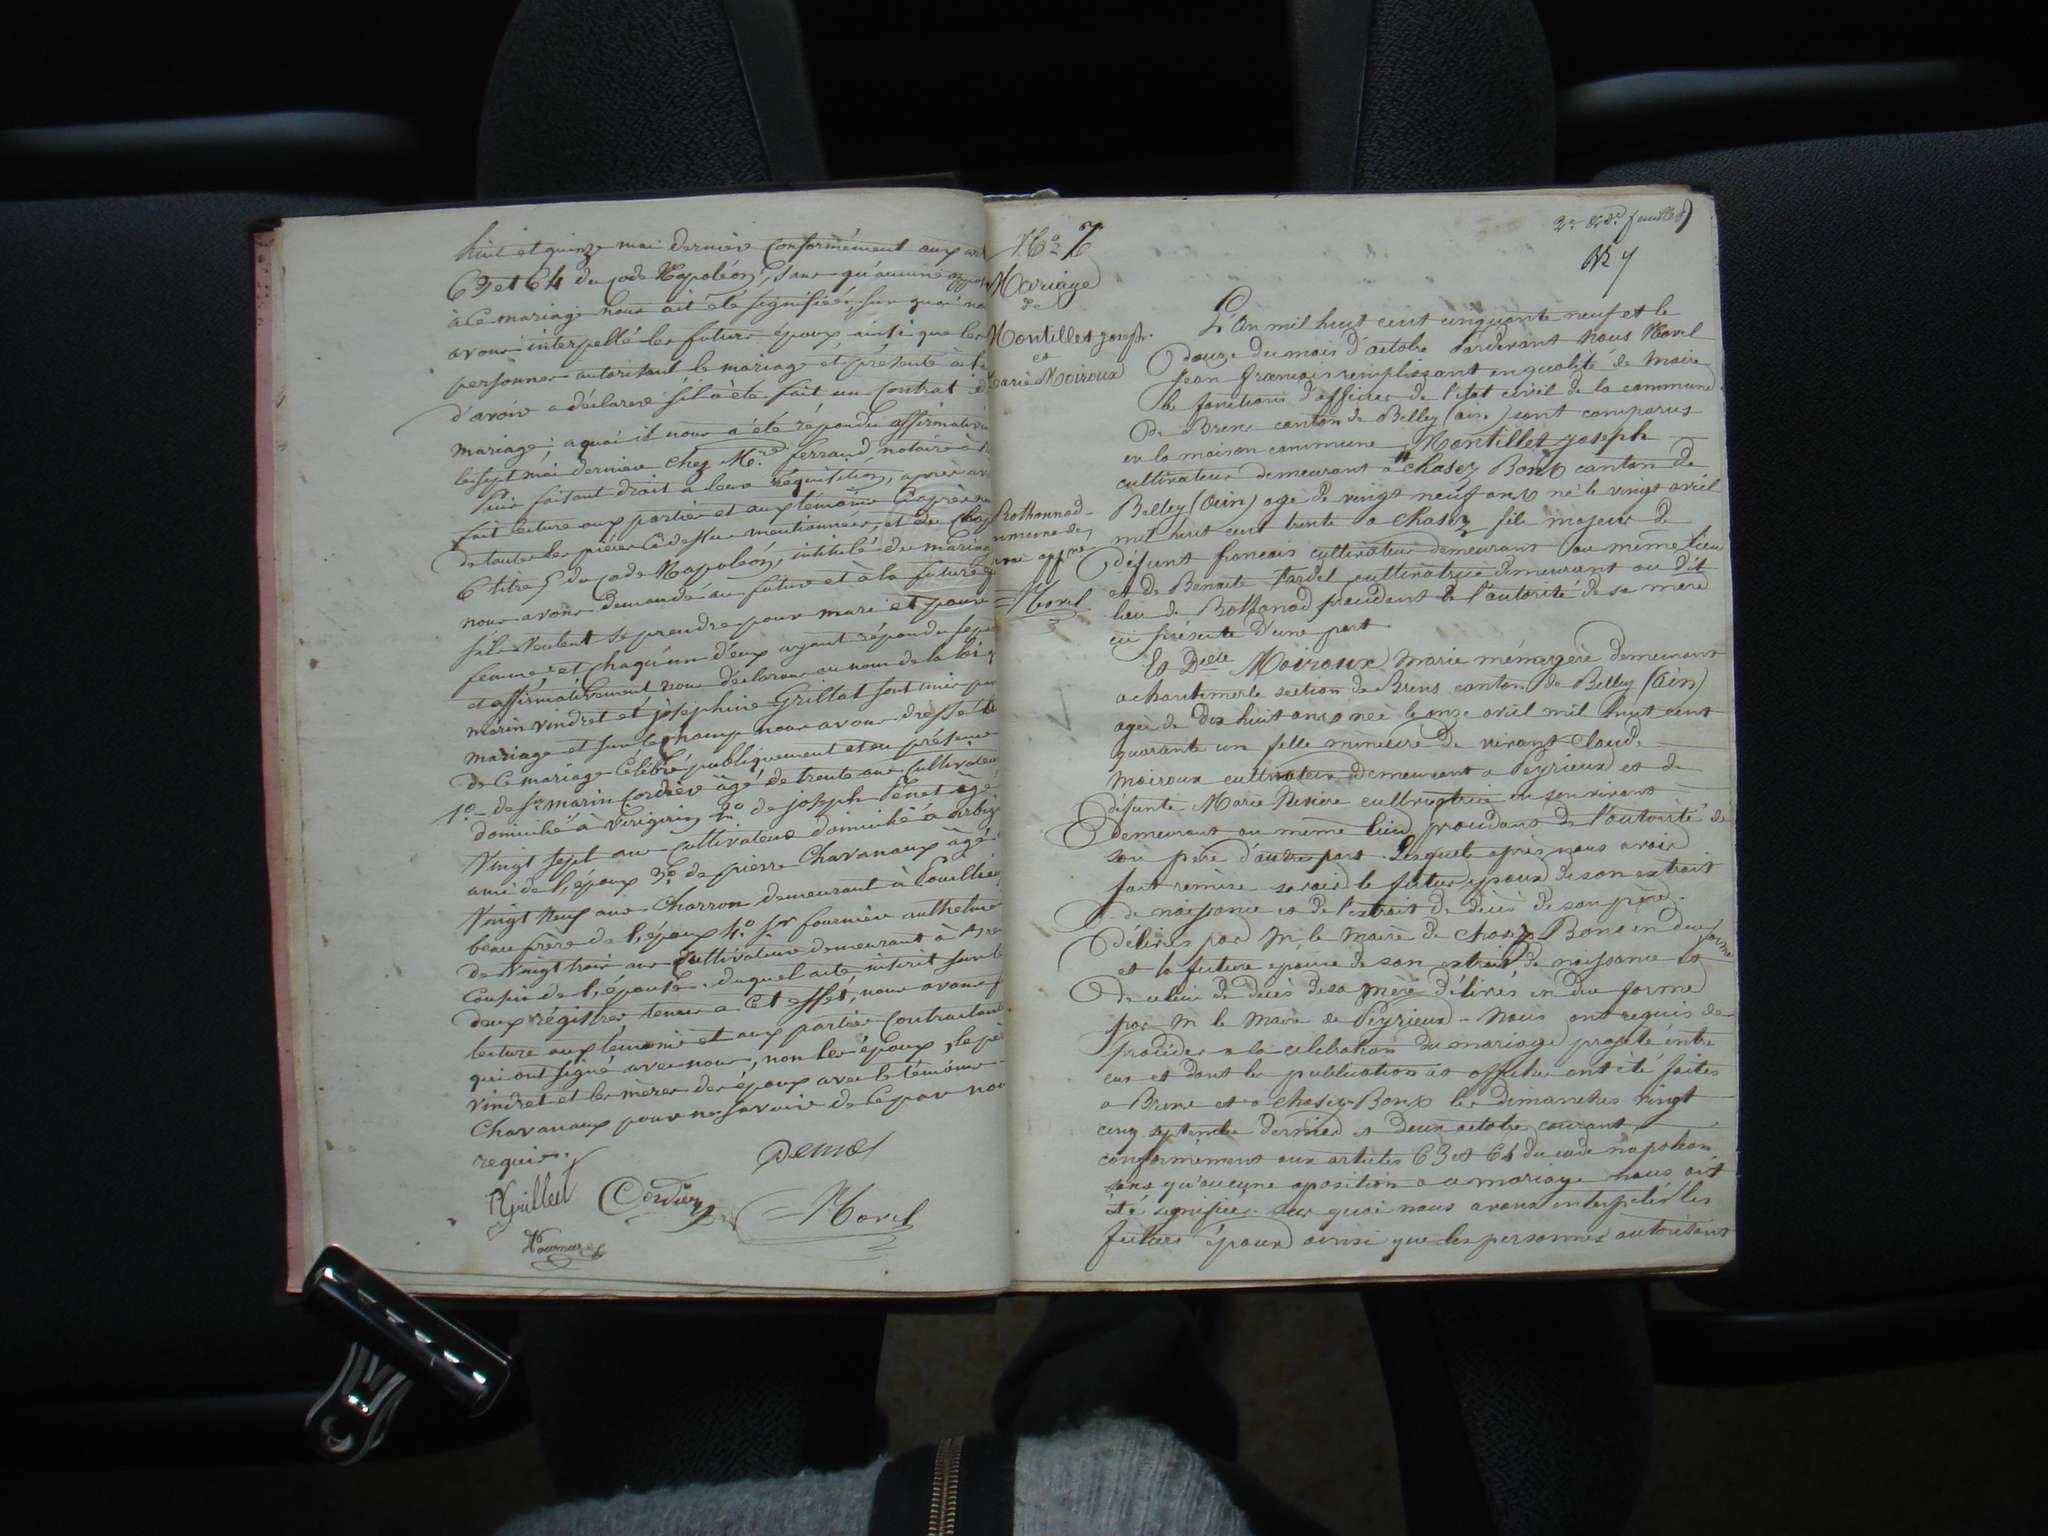 huit et quinze mai dernier conformément aux art
63 et 64 du code Napoléon, sans qu'aucune oppos
à ce mariage nous ait été signifiée, sur quoi no
avons interpellé les futurs époux ainsi que les
personnes autorisant le mariage et présente à l'
d'avoir a déclarer s'il à été fait un contrat de
mariage; a quoi il nous a été répondu affirmativ
le sept mai dernier chez Mre ferrand, notaire à
Puis faisant droit à leur réquisition, après av
fait lecture aux parties et aux témoins ci après
de toutes les pièces ci dessus mentionnées, et du chap
6 titre 5 du code Napoléon, intitulé du mariage
nous avons demandé au futur et à la future
s'ils veulent se prendre pour mari et pour
femme, et chaqu'un d'eux ayant répondu sépa
et affirmativement nous déclarons au nom de la loi q
marin vindret et joséphine Grillat sont unis par
mariage et sur le champ nous avons dressé
de ce mariage célébré publiquement et en présence
1o - de Sr marin Cordier âgé de trente ans cultivateur
domicilié à Virignin 2o de joseph Penet âgé
Vingt sept ans cultivateur domicilié à arbig
ami de l'époux 3o de pierre Chavanaux âgé
Vingt neuf ans Charron demeurant à Pouillieu
beau frère de l'époux 4o Sr fournier anthelme
de Vingt trois ans cultivateur demeurant à
cousin de l'épouse. duquel acte, inscrit sur le
deux régistres tenus a cet effet, nous avons f
lecture aux témoins et aux parties contractant
qui ont signé avec nous, non les époux, le pè
vindret et les mères des époux avec le témoins
Chavanaux pour ne savoir de ce par nou
requis.
Penet
Cordier
Morel
No 7
Mariage
de
Montillet joseph
et
Marie Moiroux
Rothonnod
commune de
Morel
2e & de feuillet
No 7
L'an mil huit cent cinquante neuf et le
douze du mois d'octobre pardevant Nous Morel
Jean francois remplissant en qualité de maire
les fonctions d'officier de l'état civil de la commune
de Brens canton de Belley (ain) sont comparus
en la maison commune Montillet joseph
cultivateur demeurant a chasey Bons canton de
Belley (Ain) agé de vingt neuf ans né le vingt avril
mil huit cent trente a chasey fils majeur de
défunt francois cultivateur demeurant au même lieu
et de Benoite Tardel cultivatrice demeurant au dit
lieu de Rothonod procédant de l'autorité de sa mère
ici présente d'une part.
Et Delle Moiroux Marie ménagère demeurant
a chantemerle section de Brens canton de Belley (Ain)
agée de dix huit ans née le onze avril mil huit cent
quarante un fille mineure de vivant Claude
Moiroux cultivateur demeurant a Peyrieux et de
défunte Marie Rivière cultivatrice en son vivant
demeurant au même lieu procédant de l'autorité de
son père d'autre part. Lesquels après nous avoir
fait remise savoir le futur époux de son extrait
de naissance et de l'extrait de décès de son père
délivrés par M. le Maire de chasey Bons en due forme
et la future épouse de son extrait de naissance et
de celui de décès de sa mère délivrés en due forme
par M le Maire de Peyrieux - Nous ont requis de
procéder a la célébration du mariage projeté entre
eux et dont les publications et affiches ont été faites
a Brens et a chasey-Bons les dimanches vingt
cinq septembre dernier et deux octobre courant
conformément aux articles 63 et 64 du code napoléon
sans qu'aucune oposition a ce mariage nous ait
été signifiée. Sur quoi nous avons interpelés les
futurs époux ainsi que les personnes autorisant